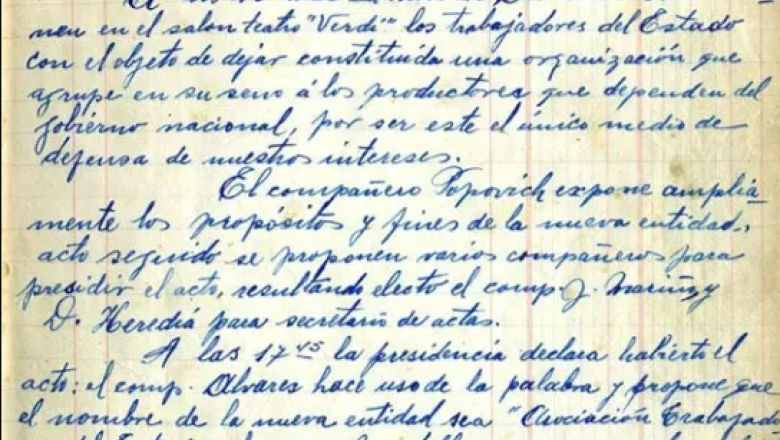 nen en el salon teatro "Verdi" los trabajadores del Estado
con el objeto de dejar constituida una organización que
agrupe en su seno á los productores que dependen del
gobierno nacional, por ser este el único medio de
defensa de nuestros intereses.
El compañero Popovich expone amplia-
mente los propósitos y fines de la nueva entidad,
acto seguido se proponen varios compañeros para
presidir el acto, resultando electo el comp. J. y
D. Heredia para secretario de actas.
A las 17 45 la presidencia declara habierto el
acto: el comp. Alvares hace uso de la palabra y propone que
el nombre de la nueva entidad sea "Asociación Trabajad